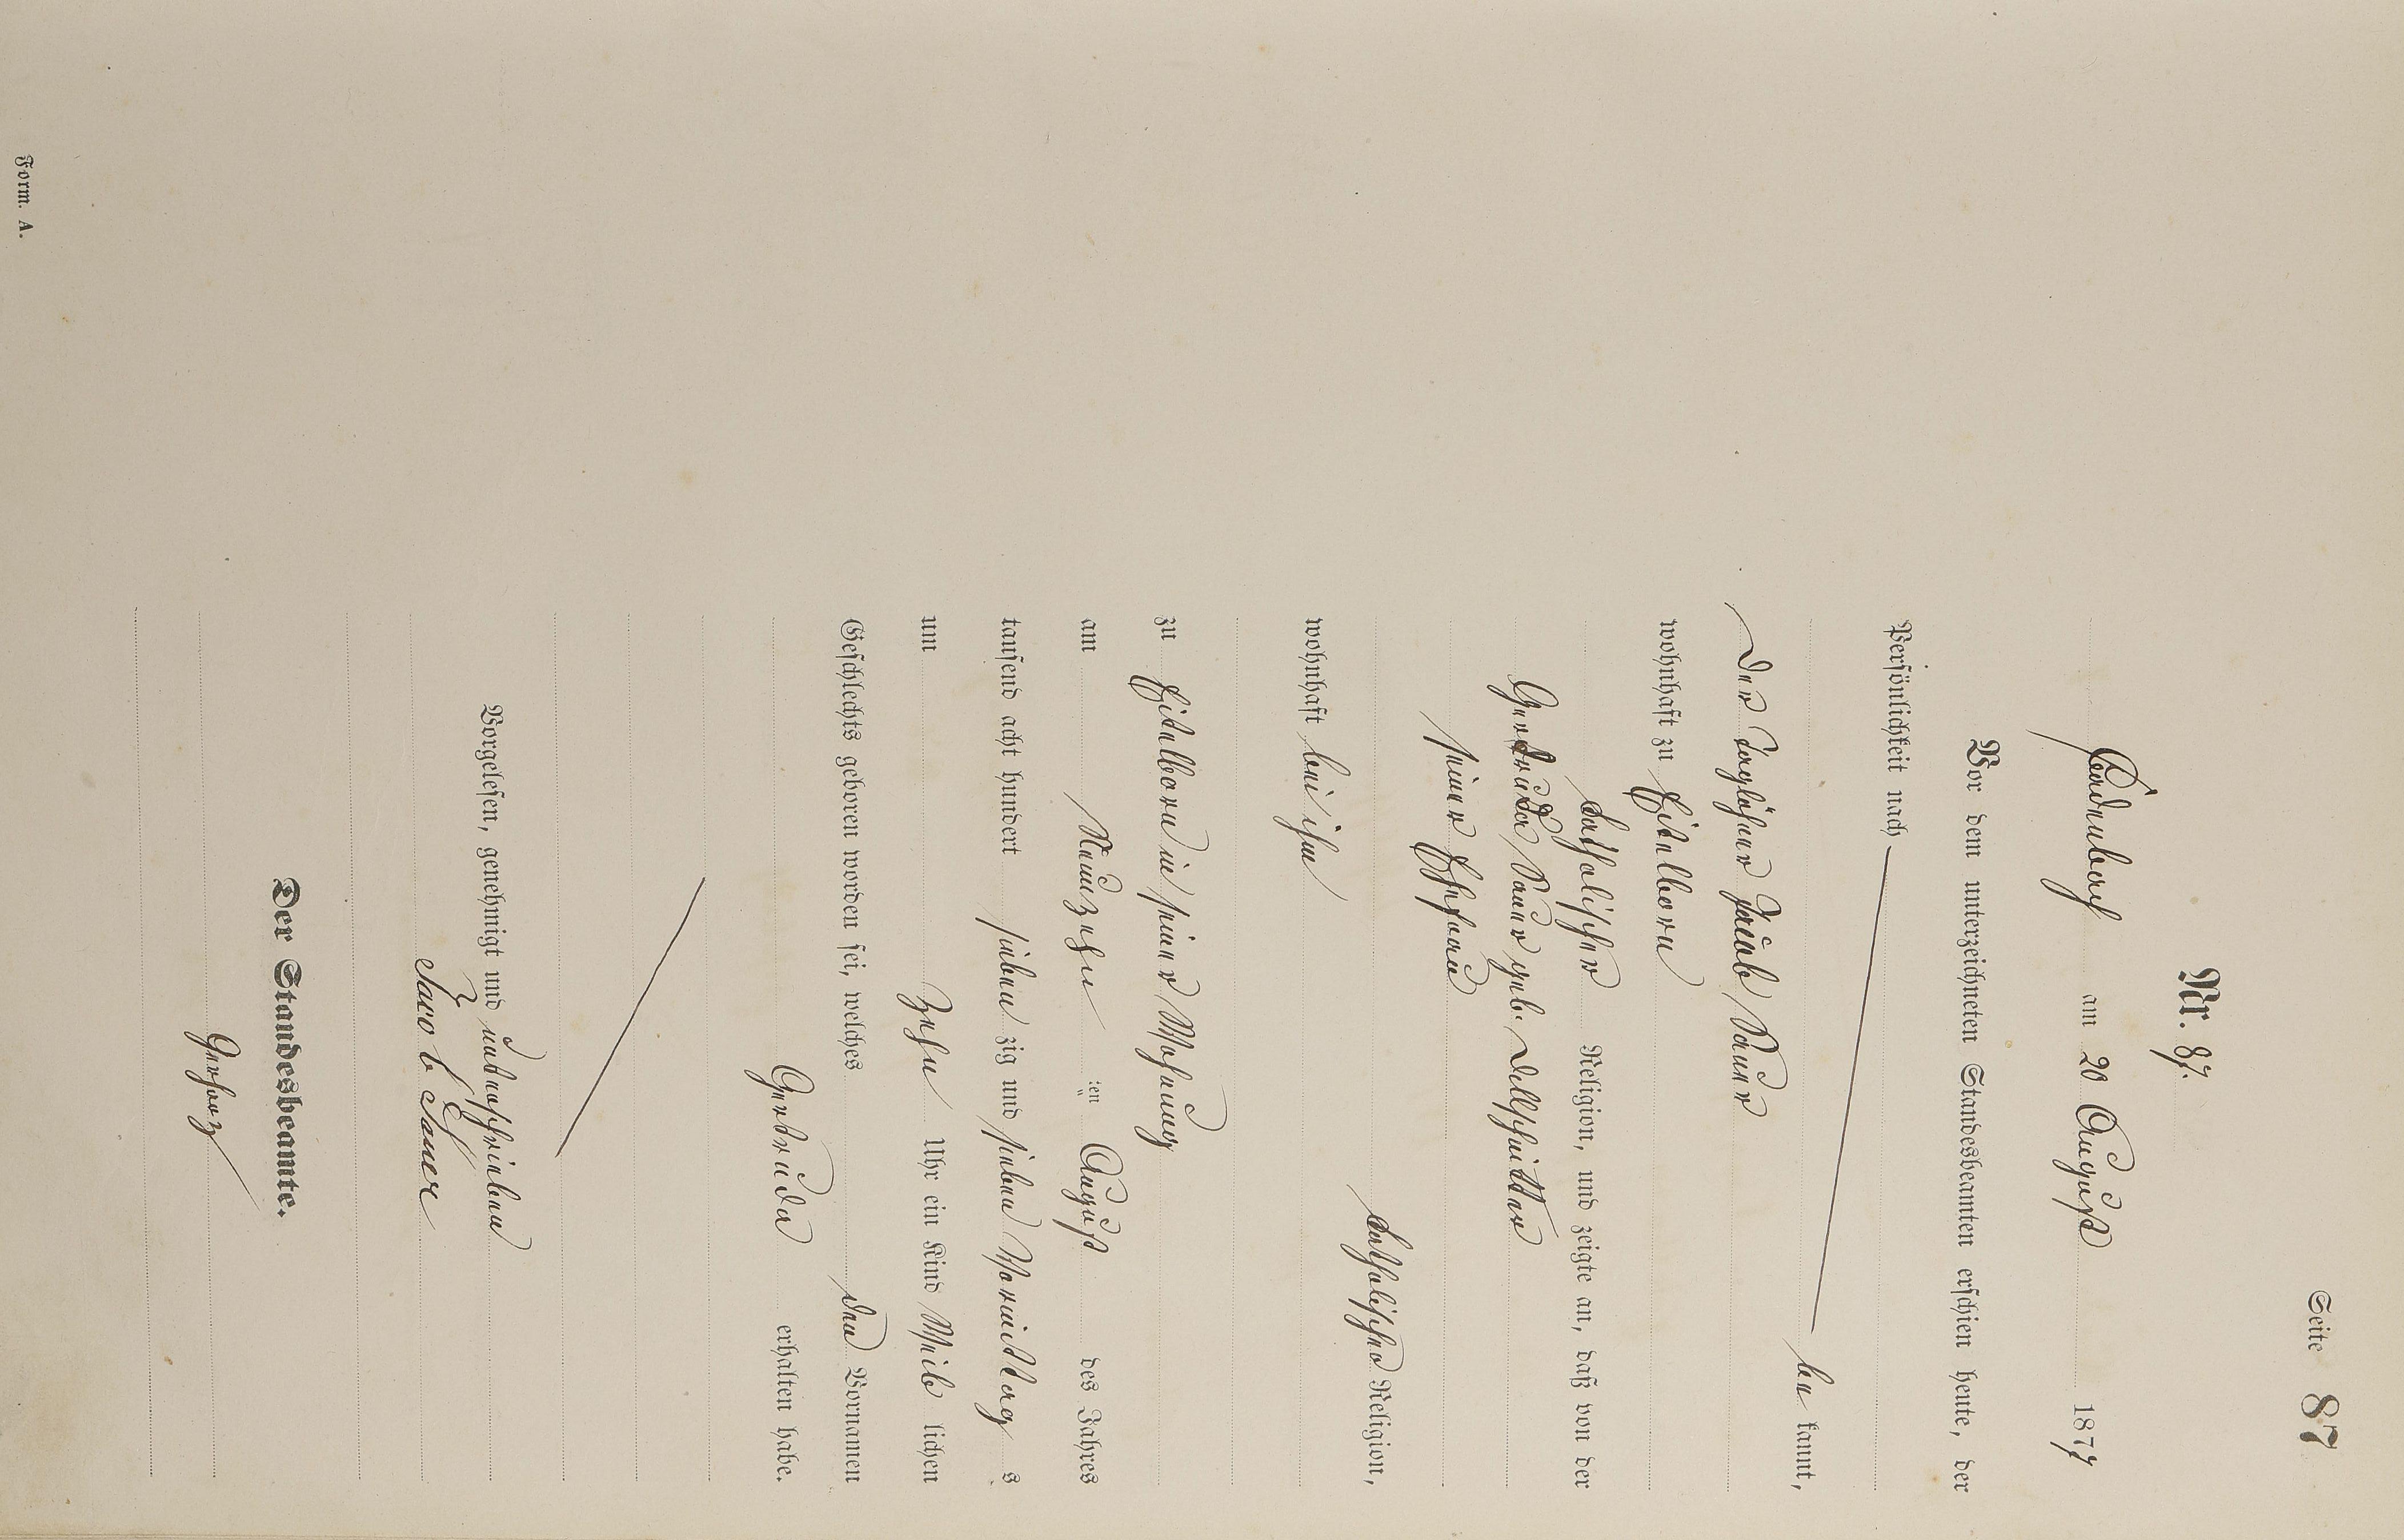 Seite 87
Nr. 87.
Cadenbach am 20 August 1877
Vor dem unterzeichneten Standesbeamten erschien heute, der
Persönlichkeit nach
be kannt,
der Taglöhner Jacob Sauer
wohnhaft zu Eitelborn
katholischer Religion, und zeigte an, daß von der
Gertruda Sauer geb. Dellschitter
seiner Ehefrau
katholischer Religion,
wohnhaft bei ihm
zu Eitelborn in seiner Wohnung
am Neunzehn ten August des Jahres
tausend acht hundert sieben zig und sieben Vormittag s
um zehn Uhr ein Kind Weib lichen
Geschlechts geboren worden sei, welches den Vornamen
Gertruda erhalten habe.
Vorgelesen, genehmigt und unterschrieben
Jacob Sauer
Der Standesbeamte.
Gerharz
Form. A.